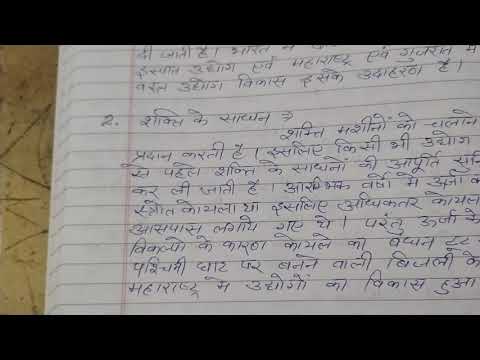 दी जाती है। भारत में
इस्पात उद्योग एवं महाराष्ट्र एवं गुजरात में
वस्त्र उद्योग विकास इसके उदाहरण है।
2. शक्ति के साधन ⇒
शक्ति मशीनों को चलाने
प्रदान करती है। इसलिए किसी भी उद्योग
से पहले शक्ति के साधनों की आपूर्ति सुनि
कर ली जाती है। आरंभिक वर्षो में ऊर्जा का
स्त्रोत कोयला था इसलिए अधिकतर कोयला
आसपास लगाये गए थे। परंतु ऊर्जा के
विकल्पों के कारण कोयले का बंधन टूट
पश्चिमी घाट पर बनने वाली बिजली के
महाराष्ट्र में उद्योगों का विकास हुआ